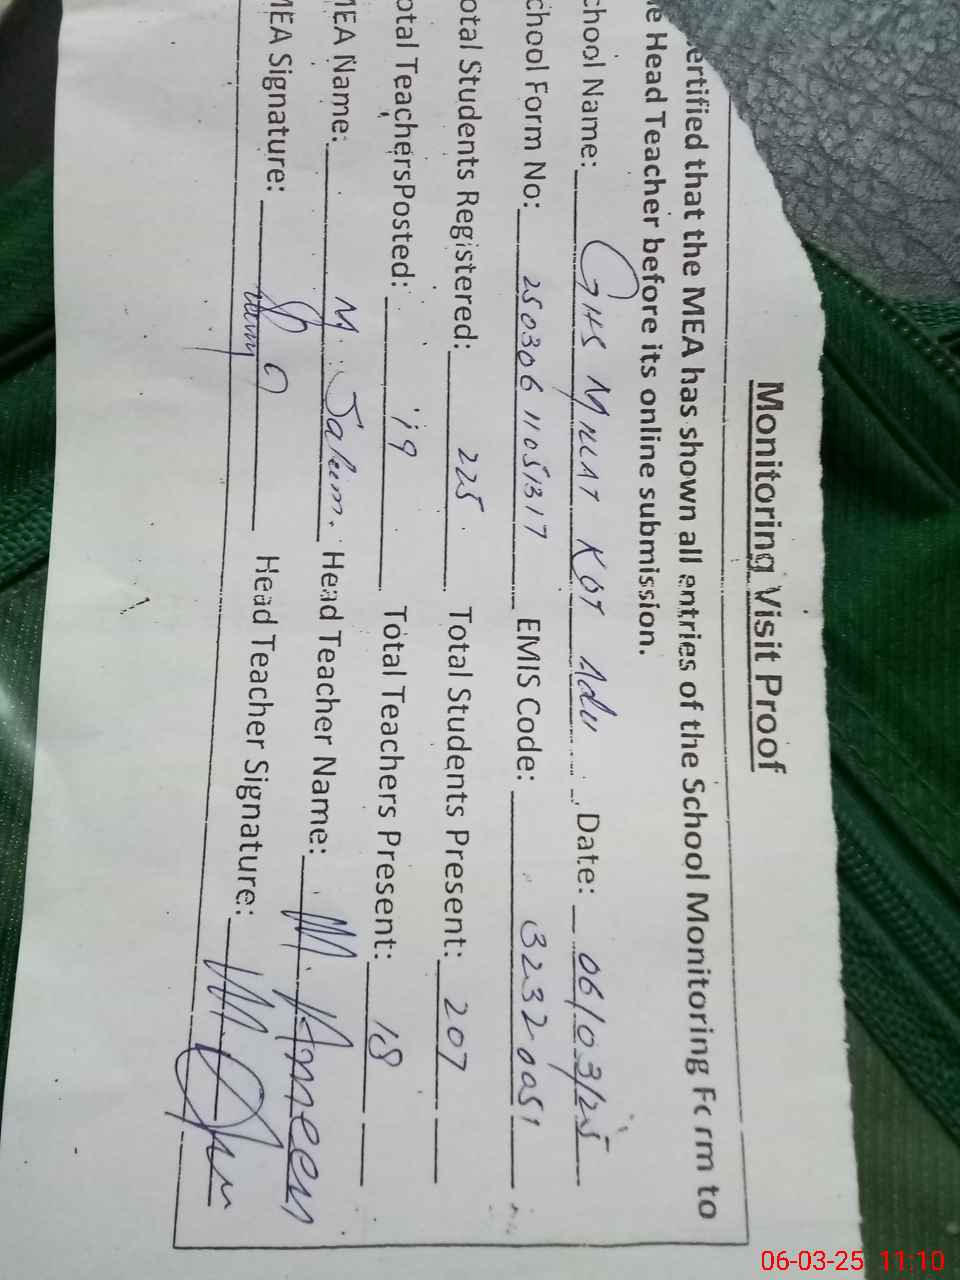 Monitoring Visit Proof
ertified that the MEA has shown all entries of the School Monitoring Form to
e Head Teacher before its online submission.
chool Name: GHS Kot Adu Date: 06/03/25
chool Form No: 250306 11051317 EMIS Code: 32320051
otal Students Registered: 225 Total Students Present: 207
otal TeachersPosted: 19 Total Teachers Present: 18
MEA Name: M. Saleem. Head Teacher Name: M. Ameen
MEA Signature: Head Teacher Signature:
06-03-25 11:10